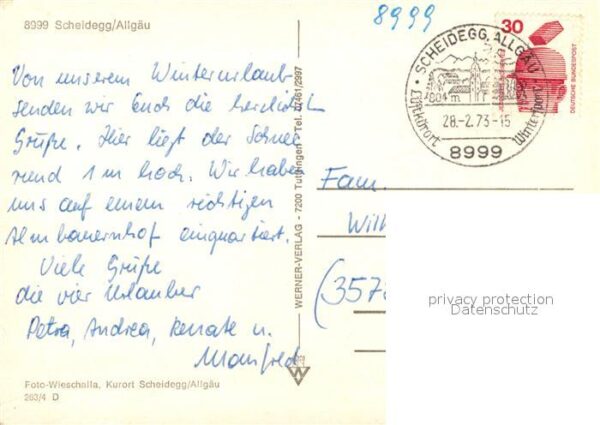 8999 Scheidegg/Allgäu
8999
Von unserem Winterurlaub
senden wir Euch die herzlichsten
Grüße. Hier liegt der Schnee
rund 1 m hoch. Wir haben
uns auf einem richtigen
Almbauernhof einquartiert.
Viele Grüße
die vier Urlauber
Petra, Andrea, Renate u.
Manfred
Foto-Wieschalla, Kurort Scheidegg/Allgäu
263/4 D
WERNER-VERLAG - 7200 Tuttlingen - Tel. 07461/2997
30
DEUTSCHE BUNDESPOST
SCHEIDEGG, ALLGÄU
804 m
28.-2.73-15
Kneippkurort
Wintersport
8999
Fam.
Wilh
(357
privacy protection
Datenschutz